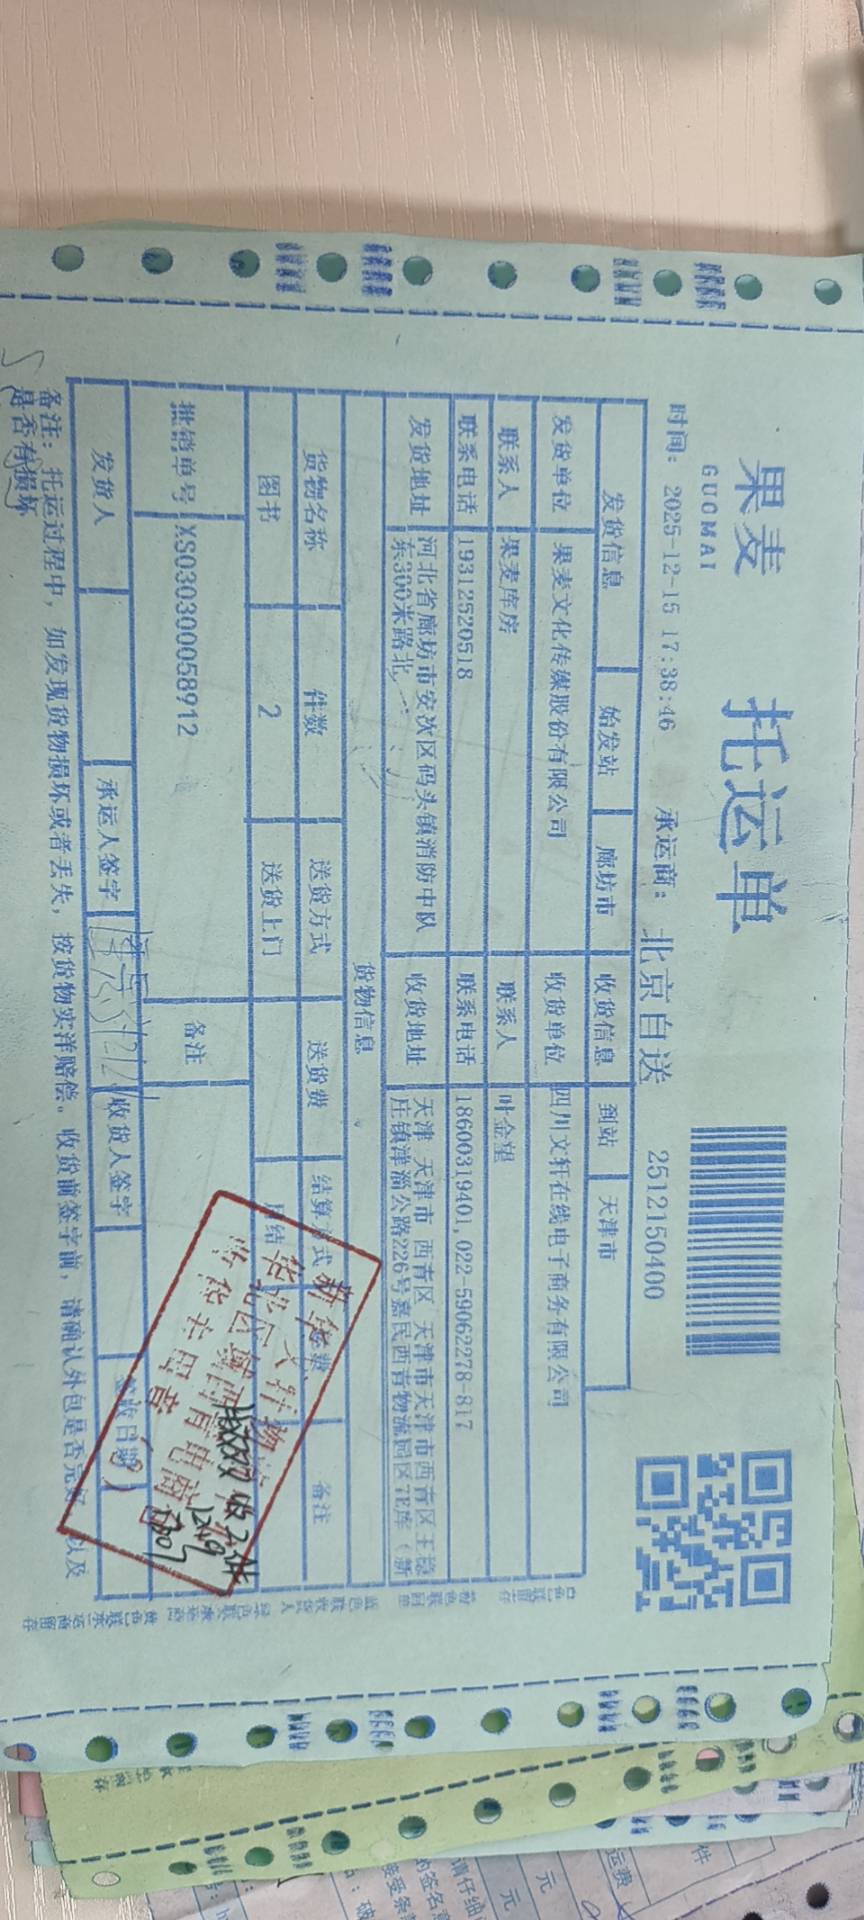 果麦 托运单
GUOMAI
时间: 2025-12-15 17:38:46 承运商: 北京自送 2512150400
发货信息 始发站 廊坊市 收货信息 到站 天津市
发货单位 果麦文化传媒股份有限公司 收货单位 四川文轩在线电子商务有限公司
联系人 果麦库房 联系人 叶金望
联系电话 19312520518 联系电话 18600319401,022-59062278-817
发货地址 河北省廊坊市安次区码头镇消防中队 收货地址 天津 天津市 西青区 天津市天津市西青区王稳
东300米路北 庄镇津淄公路226号嘉民西青物流园区7E库(新
货物信息
货物名称 件数 送货方式 送货费 结算方式 备注
图书 2 送货上门 月结
批销单号 XS030300058912 备注
发货人 承运人签字 收货人签字 签收日期
备注: 托运过程中, 如发现货物损坏或者丢失, 按货物实洋赔偿。收货前签字前, 请确认外包是否完好以及
是否有损坏
新华文轩
收2件